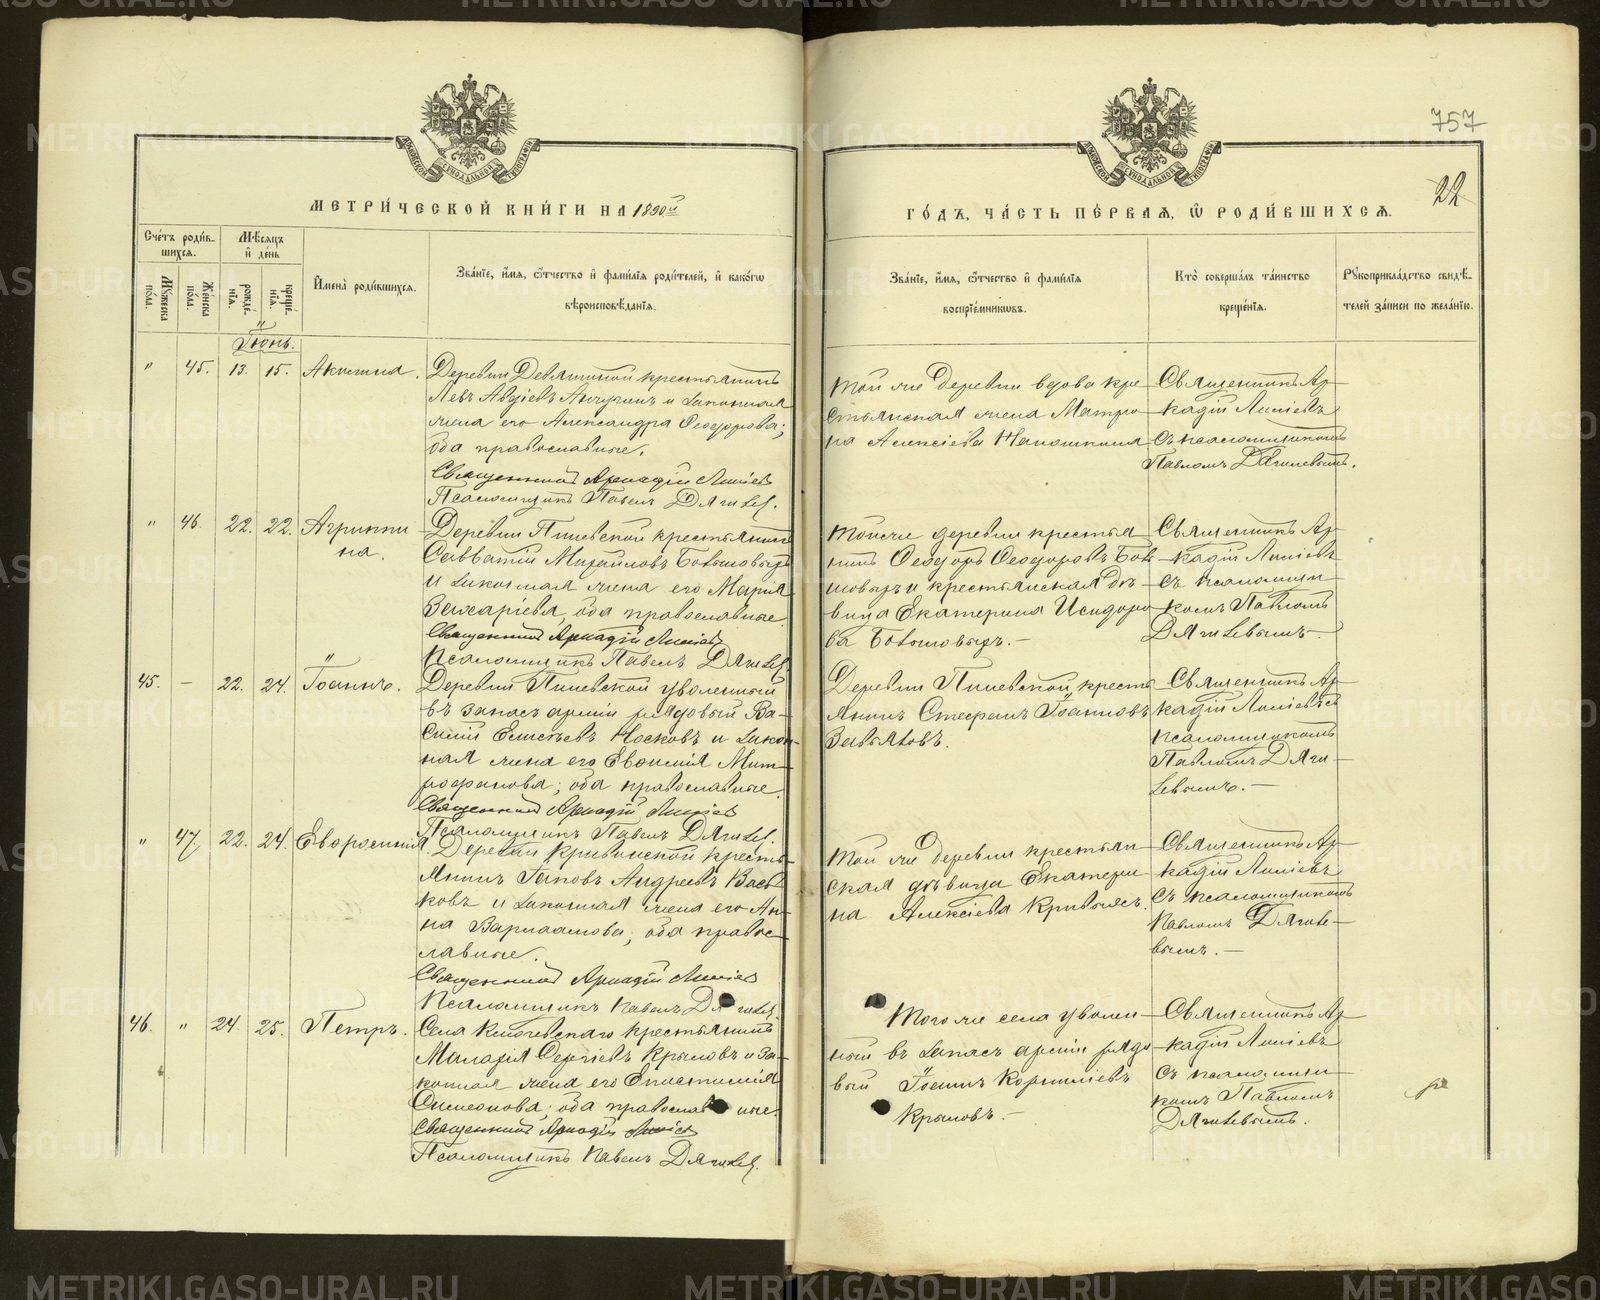 757
22
МЕТРИ́ЧЕСКОЙ КНИ́ГИ НА 1890й
ГО́ДЪ, ЧА́СТЬ ПЕ́РВАЯ, Ѿ РОДИ́ВШИХСЯ.
Сче́тъ роди́в-
шихся.
Мѣ́сяцъ
и̑ де́нь
Мꙋ́жеска по́ла.
Же́нска по́ла.
рожде́-
нїѧ.
креще́-
нїѧ.
И̑мена̀ роди́вшихся.
Зва́нїе, и̑́мѧ, ѻ҆́тчество и̑ фами́лїѧ роди́телей, и̑ како́гѡ
вѣроисповѣ́данїѧ.
Зва́нїе, и̑́мѧ, ѻ҆́тчество и̑ фами́лїѧ
воспрїе́мникѡвъ.
Кто̀ соверша́лъ та́инство
креще́нїѧ.
Рꙋкоприкла́дство свидѣ́-
телей за́писи по жела́нїю.
Іюнь.
" 45. 13. 15. Акилина.
крестьянинъ
Левъ и законная
жена его Александра Ѳеодорова;
оба православные.
Священникъ Аркадій
Псаломщикъ Павелъ Дягилев.
Той же деревни вдова кре-
стьянская жена Матро-
на Алексіева
Священникъ Ар-
кадій
съ псаломщикомъ
Павломъ Дягилевымъ.
" 46. 22. 22. Агриппи-
на.
Деревни крестьянинъ
Савватій Михайловъ
и законная жена его Марія
Захаріева, оба православные.
Священникъ Аркадій
Псаломщикъ Павелъ Дягилев.
Той же деревни крестья-
нинъ Ѳеодоръ Ѳеодоровъ
и крестьянская дѣ-
вица Екатерина Исидоро-
ва
Священникъ Ар-
кадій
съ псаломщи-
комъ Павломъ
Дягилевымъ.
45. — 22. 24. Іоаннъ.
Деревни уволенный
въ запасъ арміи рядовый Ва-
силій Елисѣевъ Носковъ и закон-
ная жена его Евѳимія Мит-
рофанова; оба православные.
Священникъ Аркадій
Псаломщикъ Павелъ Дягилев.
Деревни кресть-
янинъ Стефанъ Іоанновъ
Завьяловъ.
Священникъ Ар-
кадій съ
псаломщикомъ
Павломъ Дяги-
левымъ.—
" 47. 22. 24. Евфросинія.
Деревни Кривинской кресть-
янинъ Іаковъ Андреевъ Вась-
ковъ и законная жена его Ан-
на Варлаамова; оба право-
славные.
Священникъ Аркадій
Псаломщикъ Павелъ Дягилев.
Той же деревни крестьян-
ская дѣвица Екатери-
на Алексіева
Священникъ Ар-
кадій
съ псаломщикомъ
Павломъ Дягиле-
вымъ.—
46. " 24. 25. Петръ.
Села крестьянинъ
Малахія Сергіевъ Крыловъ и за-
конная жена его Епистимія
Симеонова; оба православные.
Священникъ Аркадій
Псаломщикъ Павелъ Дягилев.
Того же села уволен-
ный въ запасъ арміи рядо-
вый Іоаннъ Корниліевъ
Крыловъ.—
Священникъ Ар-
кадій
съ псаломщи-
комъ Павломъ
Дягилевымъ.
METRIKI.GASO-URAL.RU